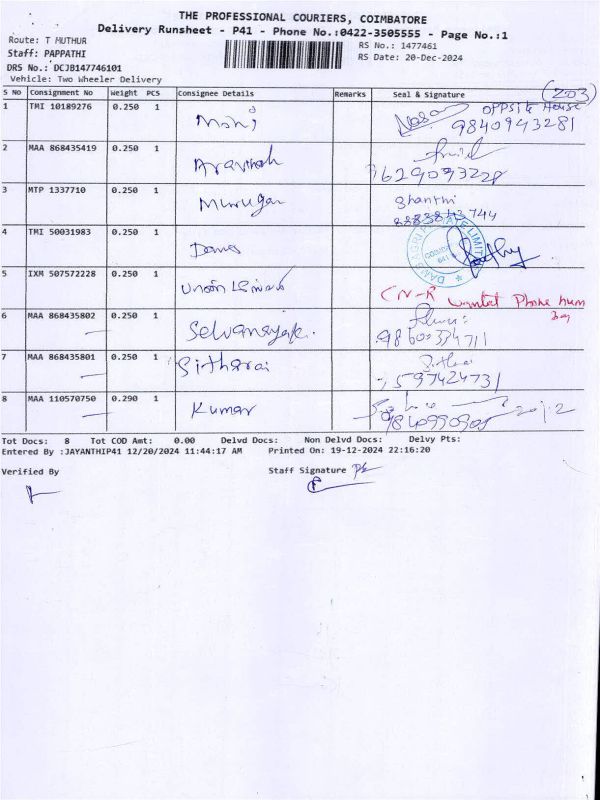 THE PROFESSIONAL COURIERS, COIMBATORE
Delivery Runsheet - P41 - Phone No.:0422-3505555 - Page No.:1
Route: T MUTHUR
RS No.: 1477461
Staff: PAPPATHI
RS Date: 20-Dec-2024
DRS No.: DCJB147746101
Vehicle: Two Wheeler Delivery
(203)
S No Consignment No Weight PCS Consignee Details Remarks Seal & Signature
1 TMI 10189276 0.250 1 Mani opposite House
9840943281
2 MAA 868435419 0.250 1 Aravinth
7629093228
3 MTP 1337710 0.250 1 Murugan Shanthi
4 TMI 50031983 0.250 1
5 IXM 507572228 0.250 1 Phone num
6 MAA 868435802 0.250 1 Selvanayak.
7 MAA 868435801 0.250 1 Sitharai
7597424731
8 MAA 110570750 0.290 1 Kumar
9840990905
Tot Docs: 8 Tot COD Amt: 0.00 Delvd Docs: Non Delvd Docs: Delvy Pts:
Entered By :JAYANTHIP41 12/20/2024 11:44:17 AM Printed On: 19-12-2024 22:16:20
Verified By Staff Signature